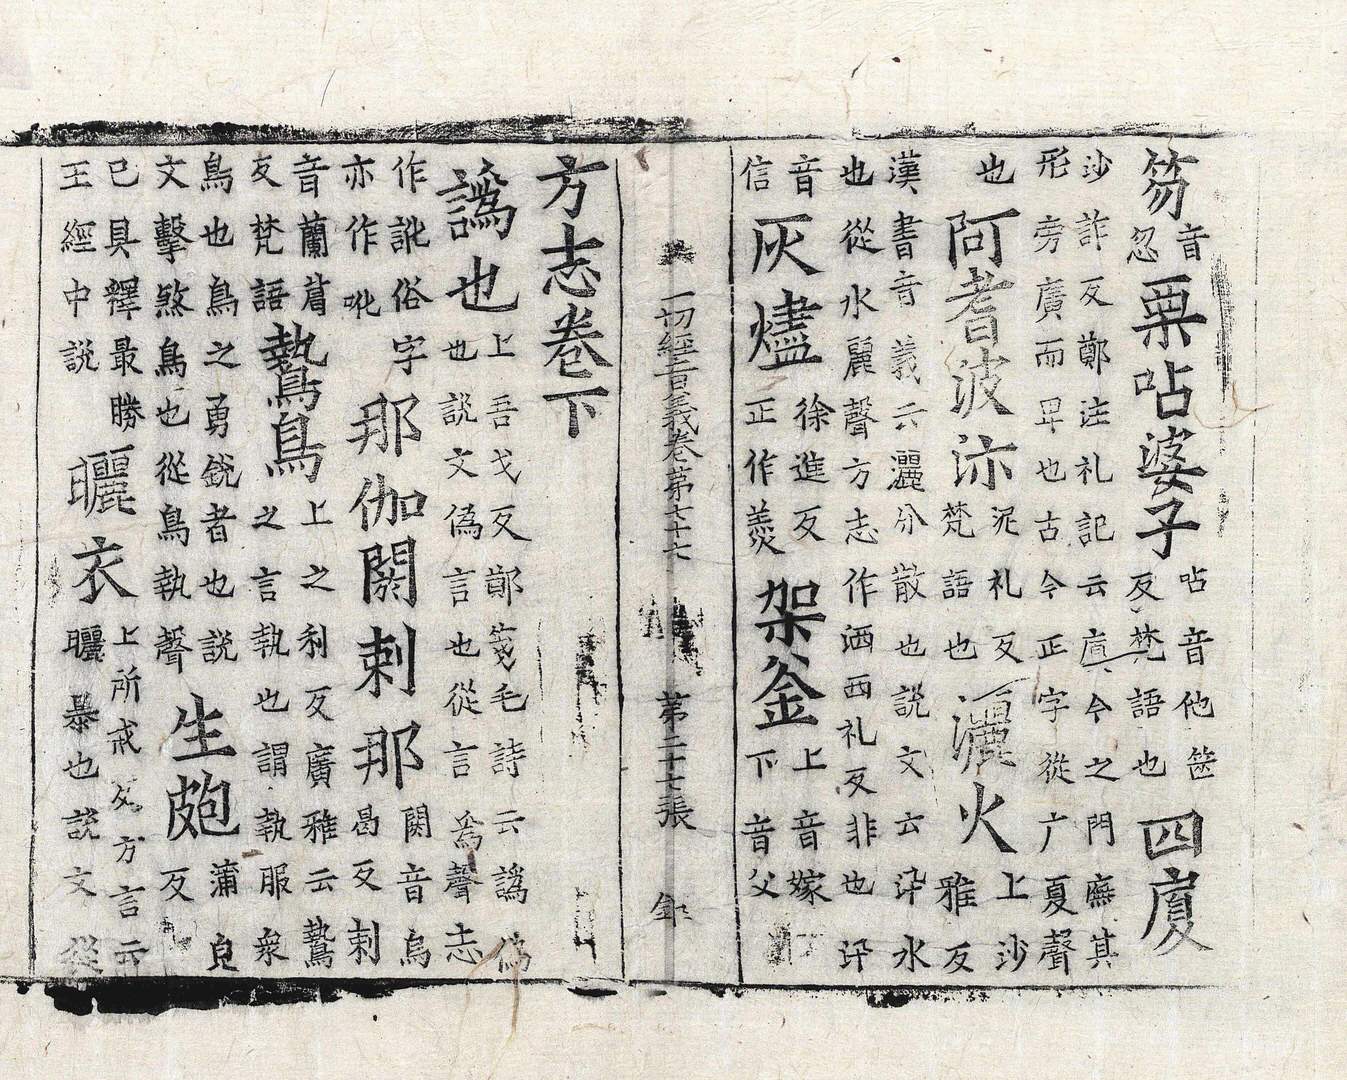 笏音忽粟呫婆子呫音他箧反梵語也四廈
沙詐反鄭注礼記云廈今之門廡其
形旁廣而卑也古今正字從广夏聲
也阿耆波沵泥礼反梵語也灑火上沙雅反
漢書音義云灑分散也說文云汛水
也從水麗聲方志作洒西礼反非也汛
音信灰燼徐進反正作㶳架釜上音嫁下音父
一切經音義卷第七十七 第二十七張
方志卷下
譌也上吾戈反鄭箋毛詩云譌僞也說文僞言也從言為聲志
作訛俗字亦作吪那伽閼剌那閼音烏曷反剌
音蘭葛反梵語鷙鳥上之利反廣雅云鷙之言執也謂執服衆
鳥也鳥之勇銳者也說文擊煞鳥也從鳥執聲生皰蒲皃反
已具釋最勝王經中說曬衣上所戒反方言云曬暴也說文從